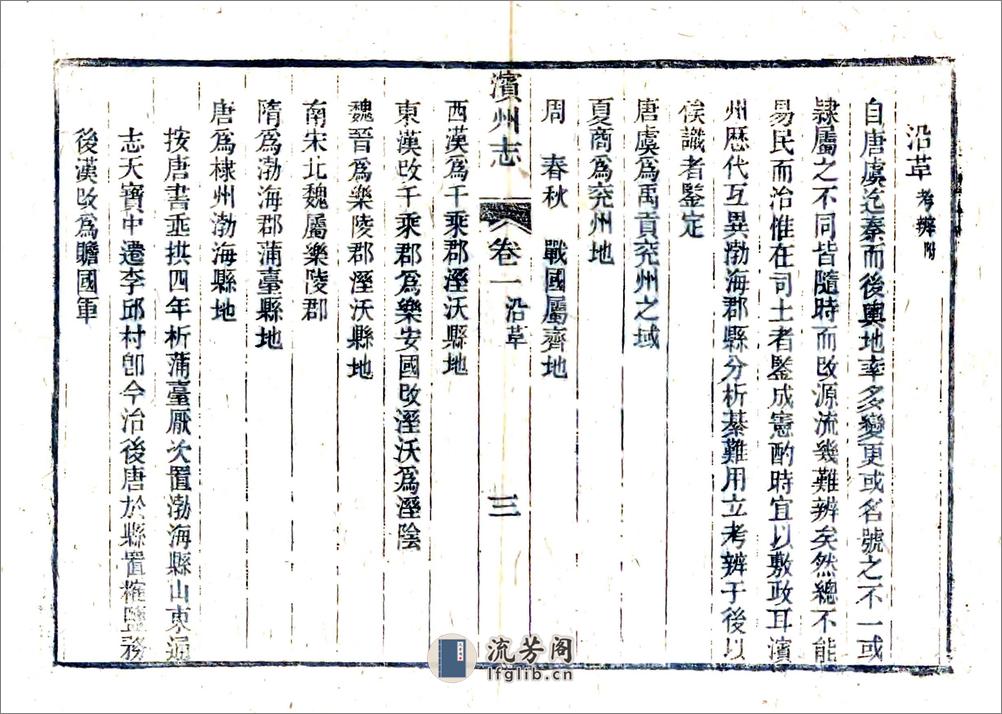 沿革考辨附
自唐虞迄秦而後輿地率多變更或名號之不一或
隷屬之不同皆隨時而改源流幾難辨矣然總不能
易民而治惟在司土者鑒成憲酌時宜以敷政耳濱
州歷代互異渤海郡縣分析綦難用立考辨于後以
俟識者鑒定
唐虞爲禹貢兖州之域
夏商爲兖州地
周 春秋 戰國屬齊地
濱州志 卷一 沿革 三
西漢爲千乘郡溼沃縣地
東漢改千乘郡爲樂安國改溼沃爲溼陰
魏晉爲樂陵郡溼沃縣地
南宋北魏屬樂陵郡
隋爲渤海郡蒲臺縣地
唐爲棣州渤海縣地
按唐書垂拱四年析蒲臺厭次置渤海縣山東通
志天寶中遷李邱村卽今治後唐於縣置榷鹽務
後漢改爲贍國軍
流芳阁
lfglib.cn